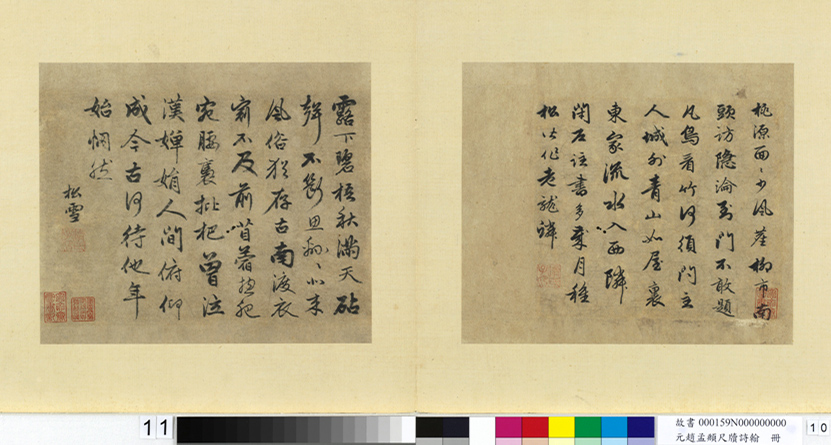 桃源面〻少風塵柳市南
頭訪隱淪到門不敢題
凡鳥看竹何須問主
人城外青山如屋裏
東家流水入西隣
閉戶著書多歲月種
松皆作老龍鱗
露下碧梧秋滿天砧
聲不斷思綿〻北來
風俗猶存古南渡衣
冠不及前苜蓿總肥
宛腰褭枇杷曾泣
漢嬋娟人間俯仰
成今古何待他年
始惘然
松雪
11
故書 000159N000000000
元趙孟頫尺牘詩翰 冊
10